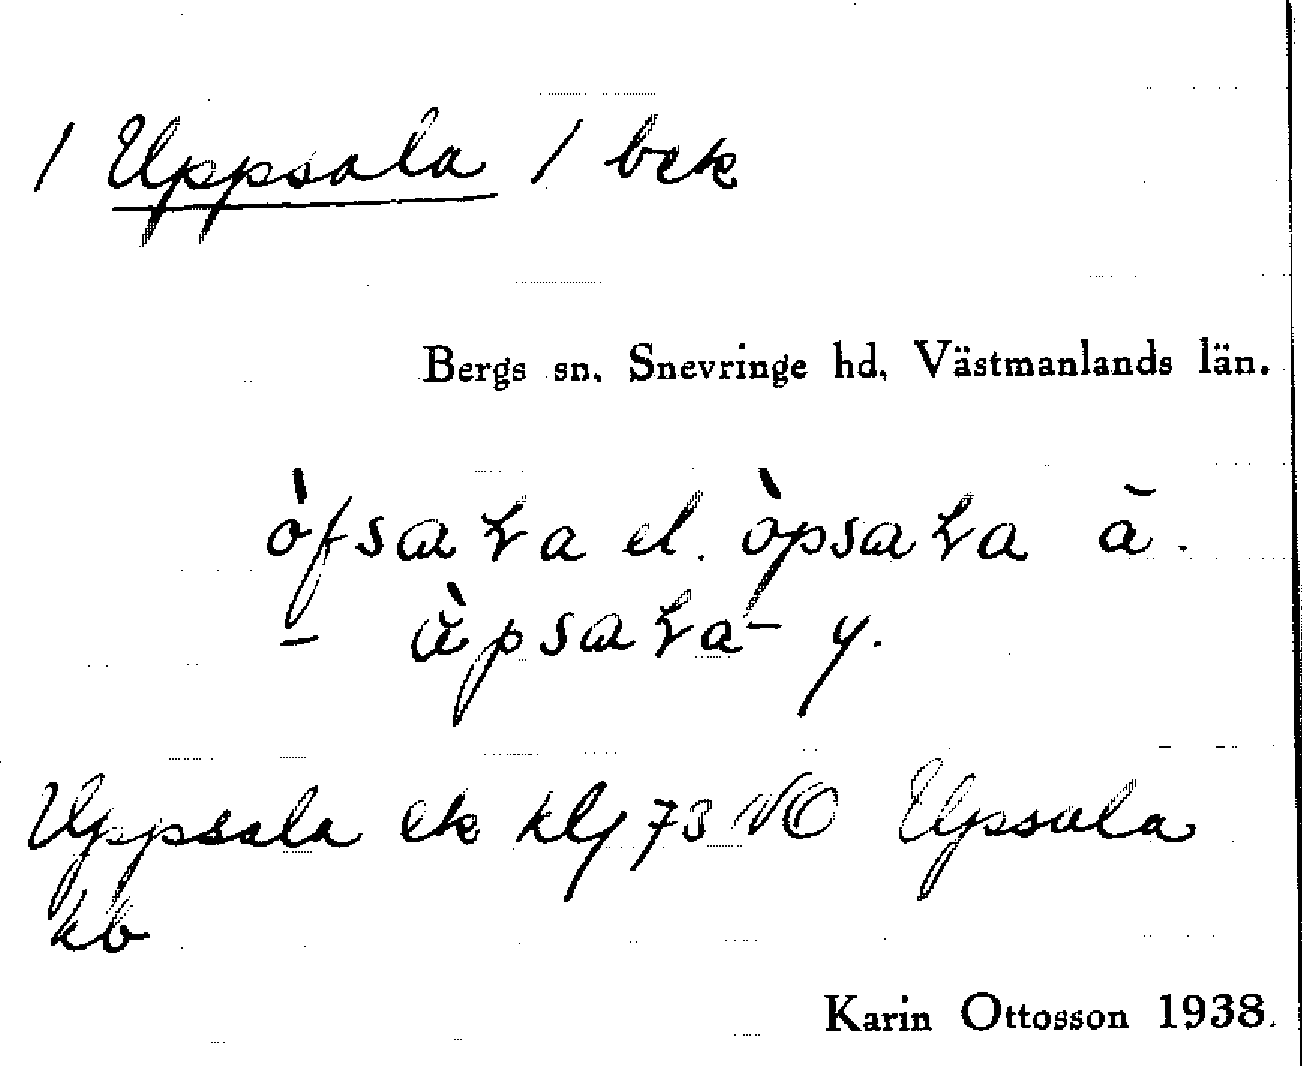 / Uppsala / bek
Bergs sn, Snevringe hd, Västmanlands län.
òfsaɽa el. òpsaɽa ā.
– ὰ̈psaɽa – y.
Uppsala ek klg 73 NO Upsala
kb
Karin Ottosson 1938.